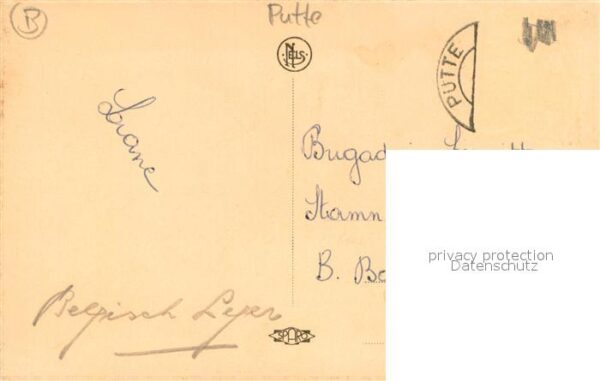 B
Putte
NELS
PUTTE
Brigad
Stamn
B. Be
privacy protection
Datenschutz
Belgisch Leger